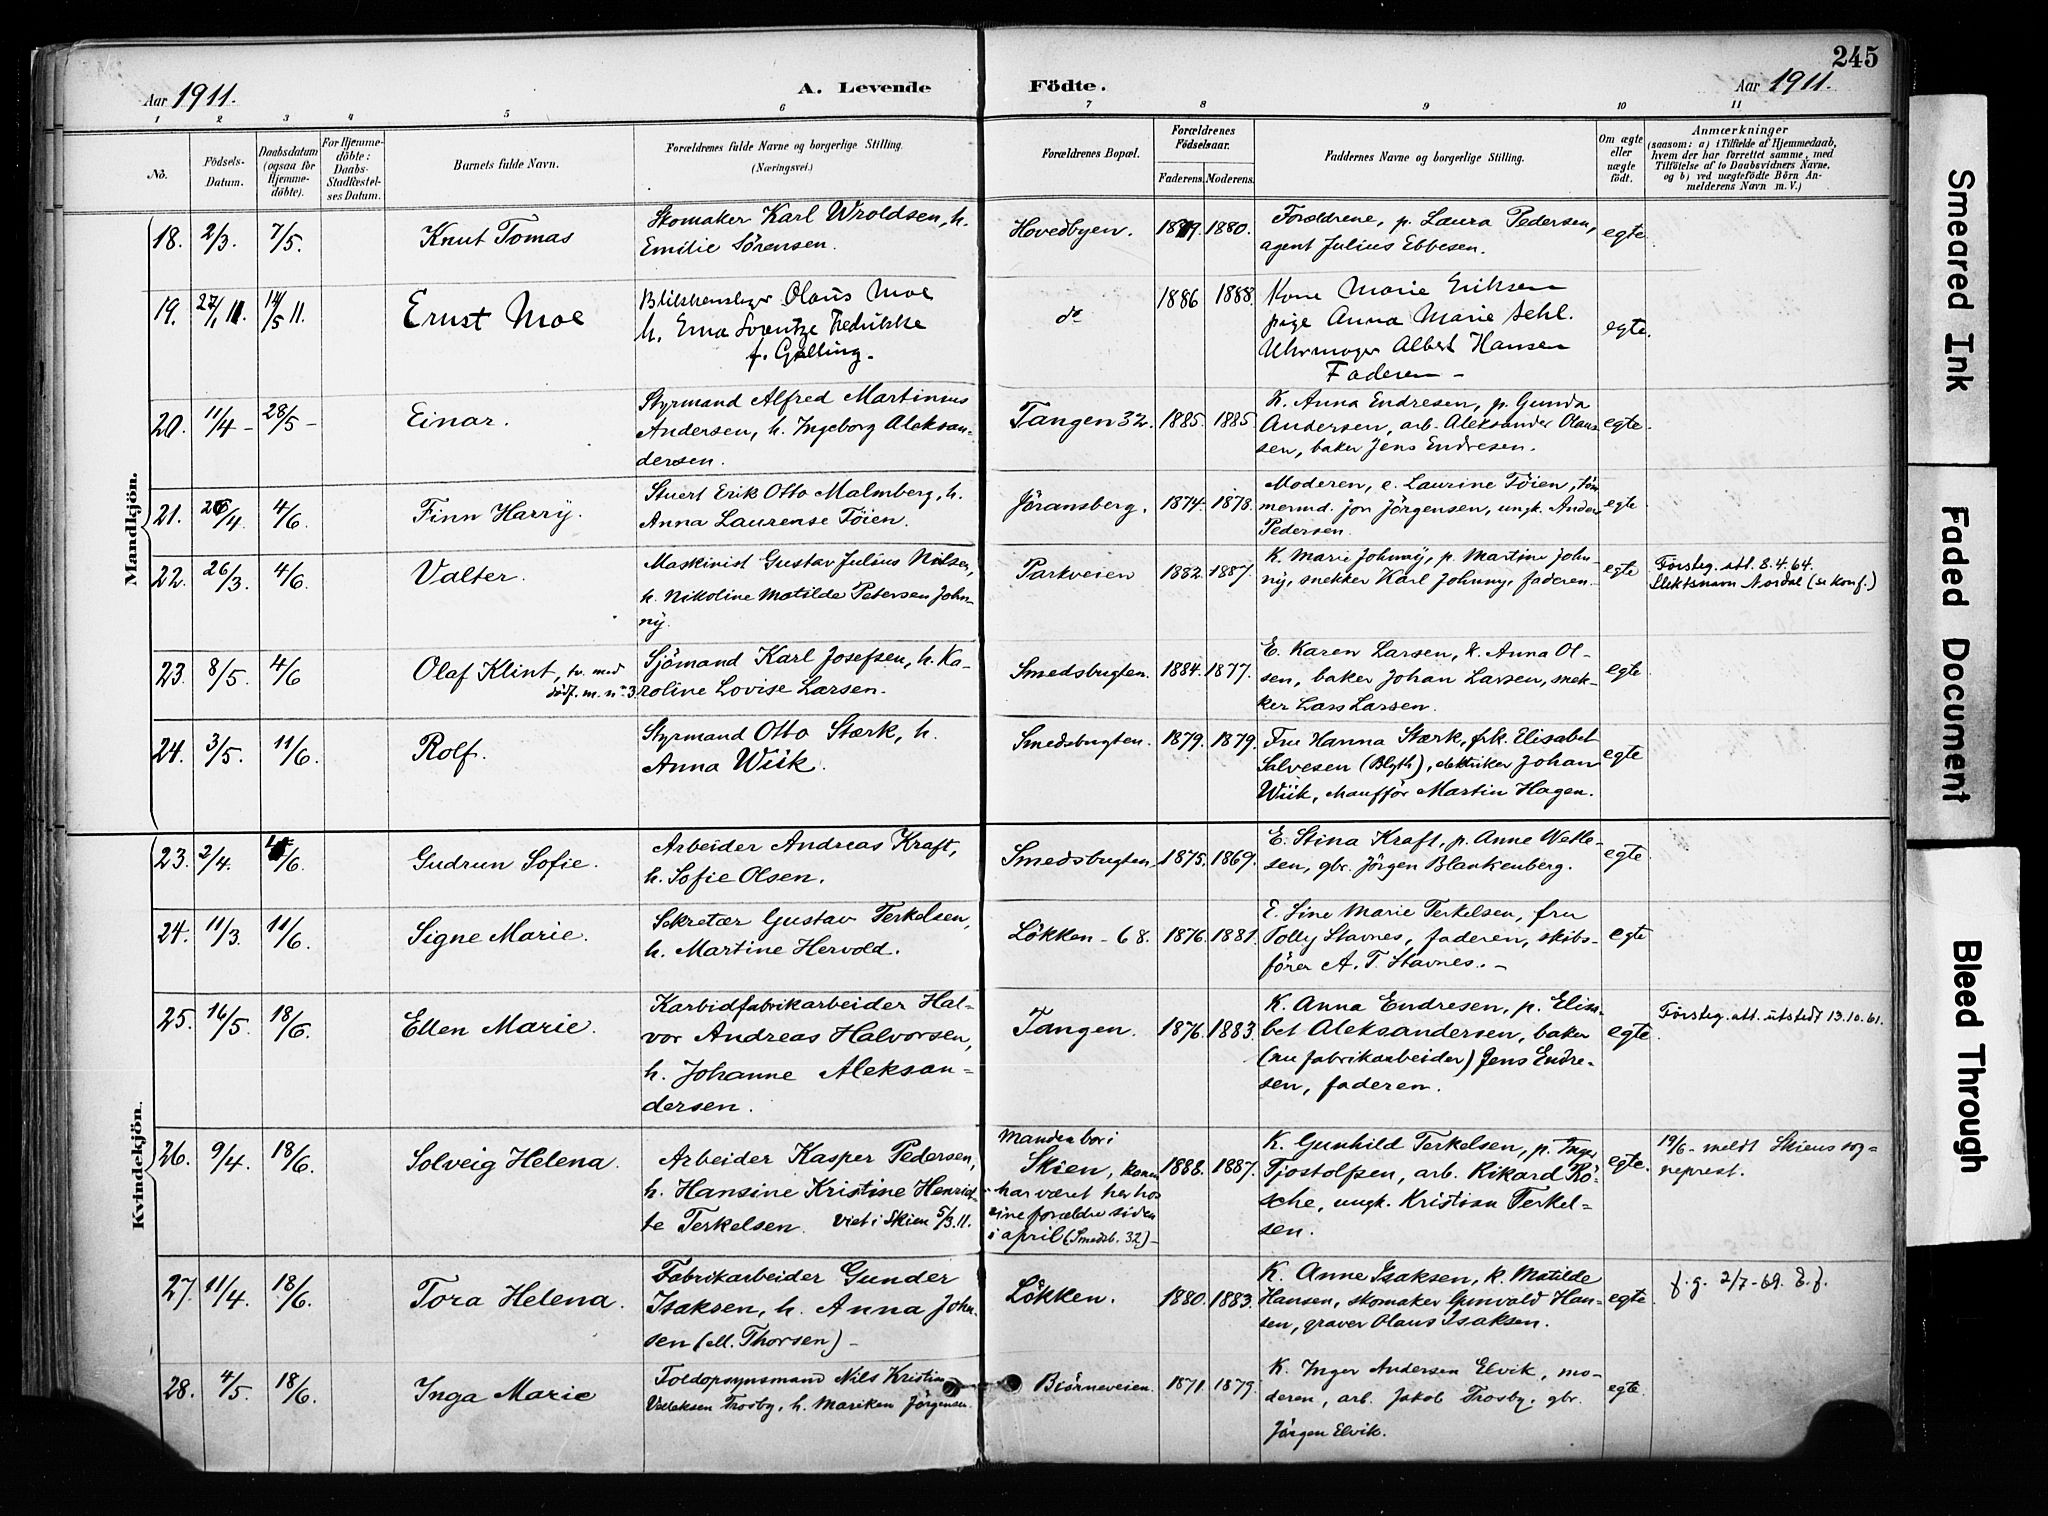 245
Aar 1911. A. Levende Födte. Aar 1911.
1 2 3 4 5 6 7 8 9 10 11
No.
Födsels-Datum.
Daabsdatum (ogsaa för Hjemmedöbte).
For Hjemmedöbte: Daabs-Stadfæstelses Datum.
Barnets fulde Navn.
Forældrenes fulde Navne og borgerlige Stilling.
(Næringsvei.)
Forældrenes Bopæl.
Forældrenes Födselsaar.
Faderens. Moderens.
Faddernes Navne og borgerlige Stilling.
Om ægte eller uægte födt.
Anmærkninger
(saasom: a) i Tilfælde af Hjemmedaab,
hvem der har forrettet samme, med
Tilföielse af to Daabsvidners Navne,
og b) ved uægtefödte Börn Anmelderens Navn m. V.)
Mandkjön.
18. 2/3. 7/5. Knut Tomas
Skomaker Karl Wroldsen, h.
Emilie Sörensen.
Hovedbyen. 1879. 1880.
Forældrene, p. Laura Pedersen,
agent Julius Ebbesen.
egte
19. 27/1 11. 14/5 11. Ernst Moe
Blikkenslager Olaus Moe
h. Erna Lorentze Fredrikke
f. Gjelling.
do 1886 1888.
Kone Marie Eriksen
pige Anna Marie Sehl.
Uhrmager Albert Hansen
Faderen -
egte.
20. 11/4 - 28/5 - Einar.
Styrmand Alfred Martinius
Andersen, h. Ingeborg Aleksan-
dersen.
Tangen 32. 1885. 1885
K. Anna Endresen, p. Gunda
Andersen, arb. Aleksander Olaus-
sen, baker Jens Endresen.
egte.
21. 26/4. 4/6. Finn Harry.
Stuert Erik Otto Malmberg, h.
Anna Laurense Töien.
Jöransberg. 1874. 1878.
Moderen, e. Laurine Töien, töm
mermd. Jon Jörgensen, ungk. Anders
Pedersen.
egte
22. 26/3. 4/6. Valter.
Maskinist Gustav Julius Nilsen,
h. Nikoline Matilde Petersen John-
ny.
Parkveien 1882. 1887.
K. Marie Johnny, p. Martine John-
ny, snekker Karl Johnny, faderen.
egte
Försteg. att. 8.4.64.
Slektsnavn Nordal (se konf.)
23. 8/5. 4/6 Olaf Klint, tv. med
dödf. m. no 3.
Sjömand Karl Josefsen, h. Ka-
roline Lovise Larsen.
Smedsbugten. 1884. 1877.
E. Karen Larsen, k. Anna Ol-
sen, baker Johan Larsen, snek-
ker Lars Larsen.
egte
24. 3/5. 11/6. Rolf.
Styrmand Otto Stærk, h.
Anna Wiik.
Smedsbugten. 1879. 1879.
Fru Hanna Stærk, frk. Elisabet
Salvesen (Blyth), elektriker Johan
Wiik, chaufför Martin Hagen.
egte
Kvindekjön.
23. 2/4. /6. Gudrun Sofie.
Arbeider Andreas Kraft,
h. Sofie Olsen.
Smedsbugten. 1875. 1869.
E. Stina Kraft, p. Anne Wetle-
sen, gbr. Jörgen Blankenberg.
egte
24. 11/3. 11/6. Signe Marie.
Sekretær Gustav Terkelsen,
h. Martine Hervold.
Lökken - 68. 1876. 1881.
E. Sine Marie Terkelsen, fru
Tolly Stavnes, faderen, skibs-
förer A. T. Stavnes. -
egte
25. 16/5. 18/6. Ellen Marie.
Karbidfabrikarbeider Hal-
vor Andreas Halvorsen,
h. Johanne Aleksan-
dersen.
Tangen. 1876. 1883.
K. Anna Endresen, p. Elisa-
bet Aleksandersen, baker
(nu fabrikarbeider) Jens Endre-
sen, faderen.
egte.
Försteg. att. utstedt 13.10.61.
26. 9/4. 18/6. Solveig Helena.
Arbeider Kasper Pedersen,
h. Hansine Kristine Henriet-
te Terkelsen. Viet i Skien 5/3.11.
Manden bor i
Skien, konen
har været her hos
sine forældre siden
i april (Smedsb. 32) -
1888. 1887.
K. Gunhild Terkelsen, p. Inger
Tjostolfsen, arb. Rikard Rö-
sche, ungk. Kristian Terkel-
sen.
egte.
19/6 - meldt Skiens sog-
neprest.
27. 11/4. 18/6. Tora Helena.
Fabrikarbeider Gunder
Isaksen, h. Anna John-
sen (ell. Thorsen) -
Lökken. 1880. 1883.
K. Anne Isaksen, k. Matilde
Hansen, skomaker Gunvald Han-
sen, graver Olaus Isaksen.
egte.
f.g. 2/7-69. E.f.
28. 4/5. 18/6. Inga Marie
Toldopsynsmand Nils Kristian
Trosby, h. Mariken Jörgensen.
Björneveien. 1871. 1879.
K. Inger Andersen Elvik, mo-
deren, arb. Jakob Trosby, gbr.
Jörgen Elvik.
egte.
Smeared Ink
Faded Document
Bleed Through